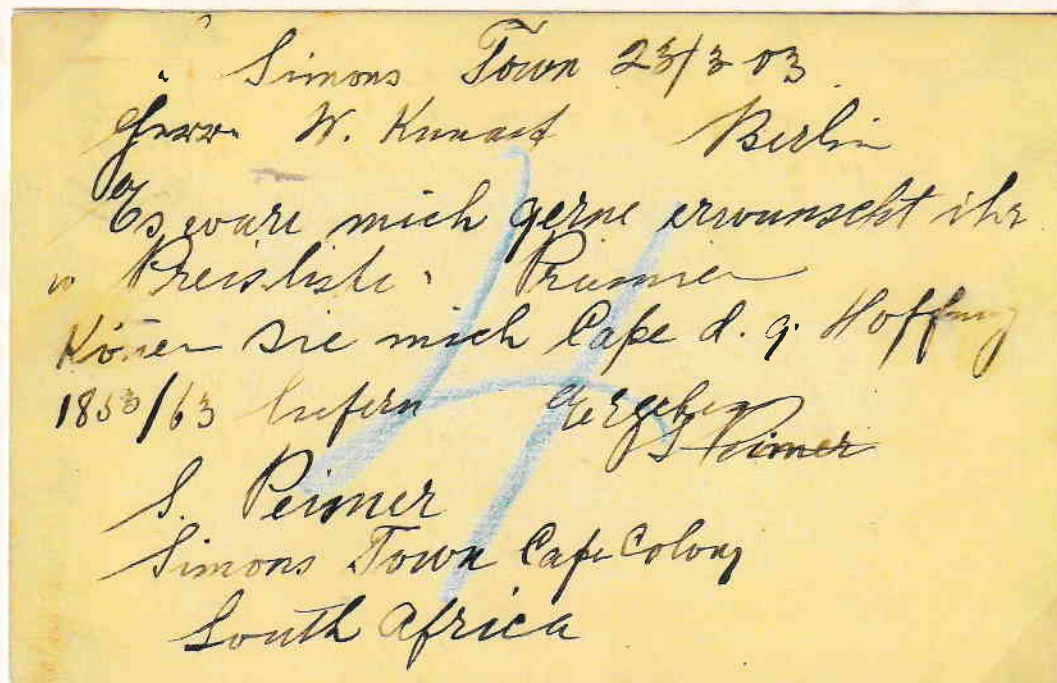 Simons Town 23/3 03
Herrn W. Kunast Berlin
Es wäre mich gerne erwunscht ihr
Preisliste.
Könen sie mich Cape d. g. Hoffnung
1853/63 liefern Ergeben
S Peimer
S. Peimer
Simons Town Cape Colony
South Africa
4